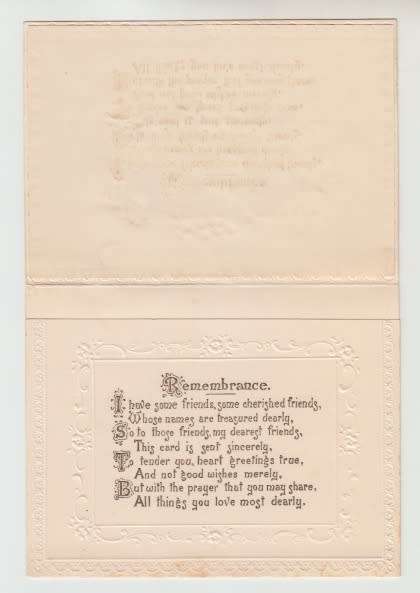 Remembrance.
I have some friends, some cherished friends,
Whose names are treasured dearly,
So to those friends, my dearest friends,
This card is sent sincerely,
I tender you, heart greetings true,
And not good wishes merely,
But with the prayer that you may share,
All things you love most dearly.